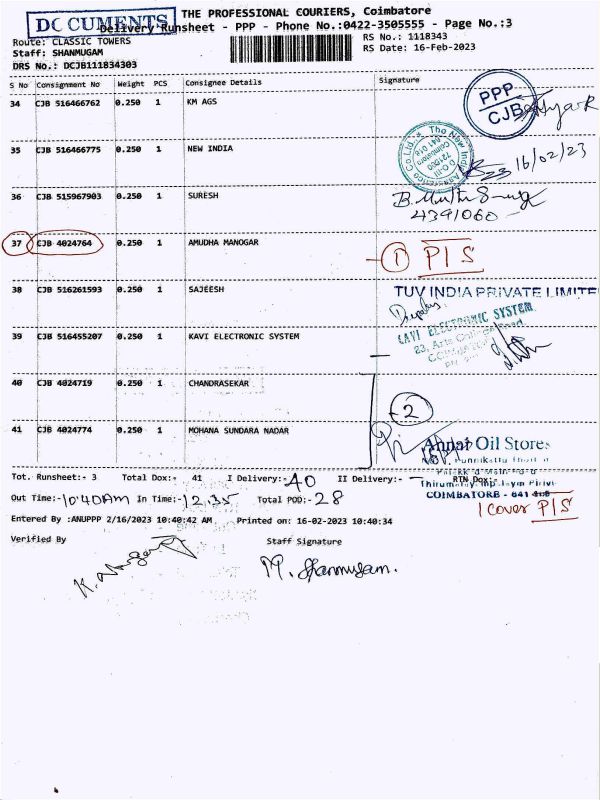 DOCUMENTS
THE PROFESSIONAL COURIERS, Coimbatore
Delivery Runsheet - PPP - Phone No.:0422-3505555 - Page No.:3
Route: CLASSIC TOWERS
RS No.: 1118343
Staff: SHANMUGAM
RS Date: 16-Feb-2023
DRS No.: DCJB111834303
S No Consignment No Weight PCS Consignee Details Signature
34 CJB 516466762 0.250 1 KM AGS
PPP
CJB
35 CJB 516466775 0.250 1 NEW INDIA
16/02/23
36 CJB 515967903 0.250 1 SURESH
4391060
37 CJB 4024764 0.250 1 AMUDHA MANOGAR
1 P/S
38 CJB 516261593 0.250 1 SAJEESH
TUV INDIA PRIVATE LIMITE
39 CJB 516455207 0.250 1 KAVI ELECTRONIC SYSTEM
KAVI ELECTRONIC SYSTEM
23, Arts College Road,
40 CJB 4024719 0.250 1 CHANDRASEKAR
2
41 CJB 4024774 0.250 1 MOHANA SUNDARA NADAR
Annai Oil Stores
Tot. Runsheet:- 3 Total Dox:- 41 I Delivery:- 40 II Delivery:- - RTN Dox:-
Out Time:- 10:40AM In Time:- 12.35 Total POD:- 28
COIMBATORE - 641
1 cover P/S
Entered By :ANUPPP 2/16/2023 10:40:42 AM Printed on: 16-02-2023 10:40:34
Verified By Staff Signature
M. Shanmugam.